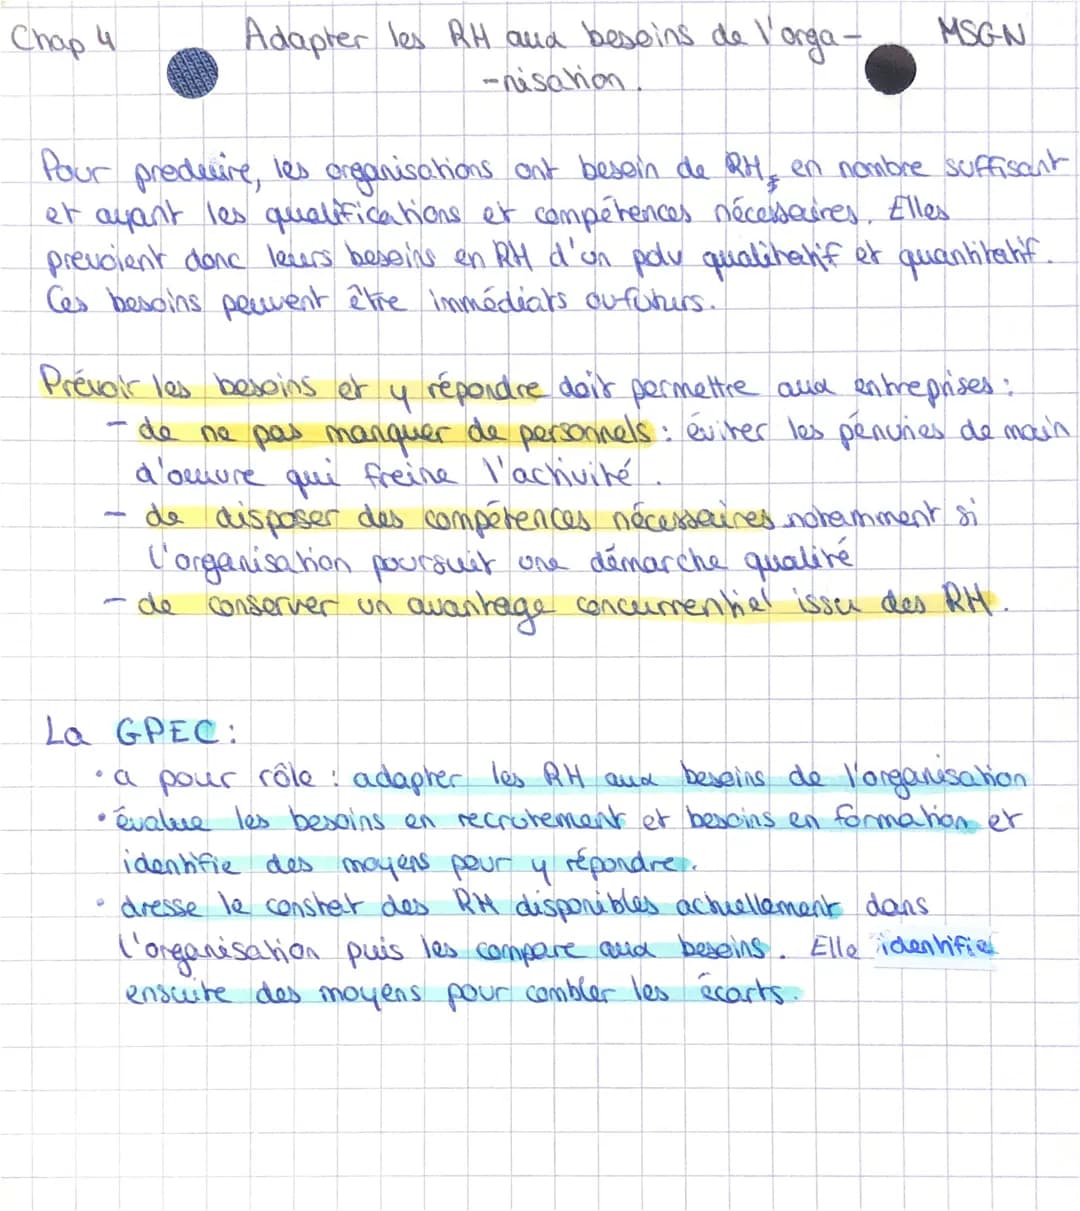 Chap 4 Adapter les RH aux besoins de l'orga- MSGN
-nisation.
Pour produire, les organisations ont besoin de RH, en nombre suffisant
et ayant les qualifications et compétences nécessaires. Elles
prevoient donc leurs besoins en RH d'un pdv qualitatif et quantitatif.
Ces besoins peuvent être immédiats ou futurs.
Prévoir les besoins et y répondre doit permettre aux entreprises :
- de ne pas manquer de personnels : éviter les pénuries de main
d'oeuvre qui freine l'activité.
- de disposer des compétences nécessaires notamment si
l'organisation poursuit une démarche qualité
- de conserver un avantage concurrentiel issu des RH.
La GPEC :
• a pour rôle : adapter les RH aux besoins de l'organisation
• évalue les besoins en recrutement et besoins en formation et
identifie des moyens pour y répondre.
• dresse le constat des RH disponibles actuellement dans
l'organisation puis les compare aux besoins. Elle identifie
ensuite des moyens pour combler les écarts.